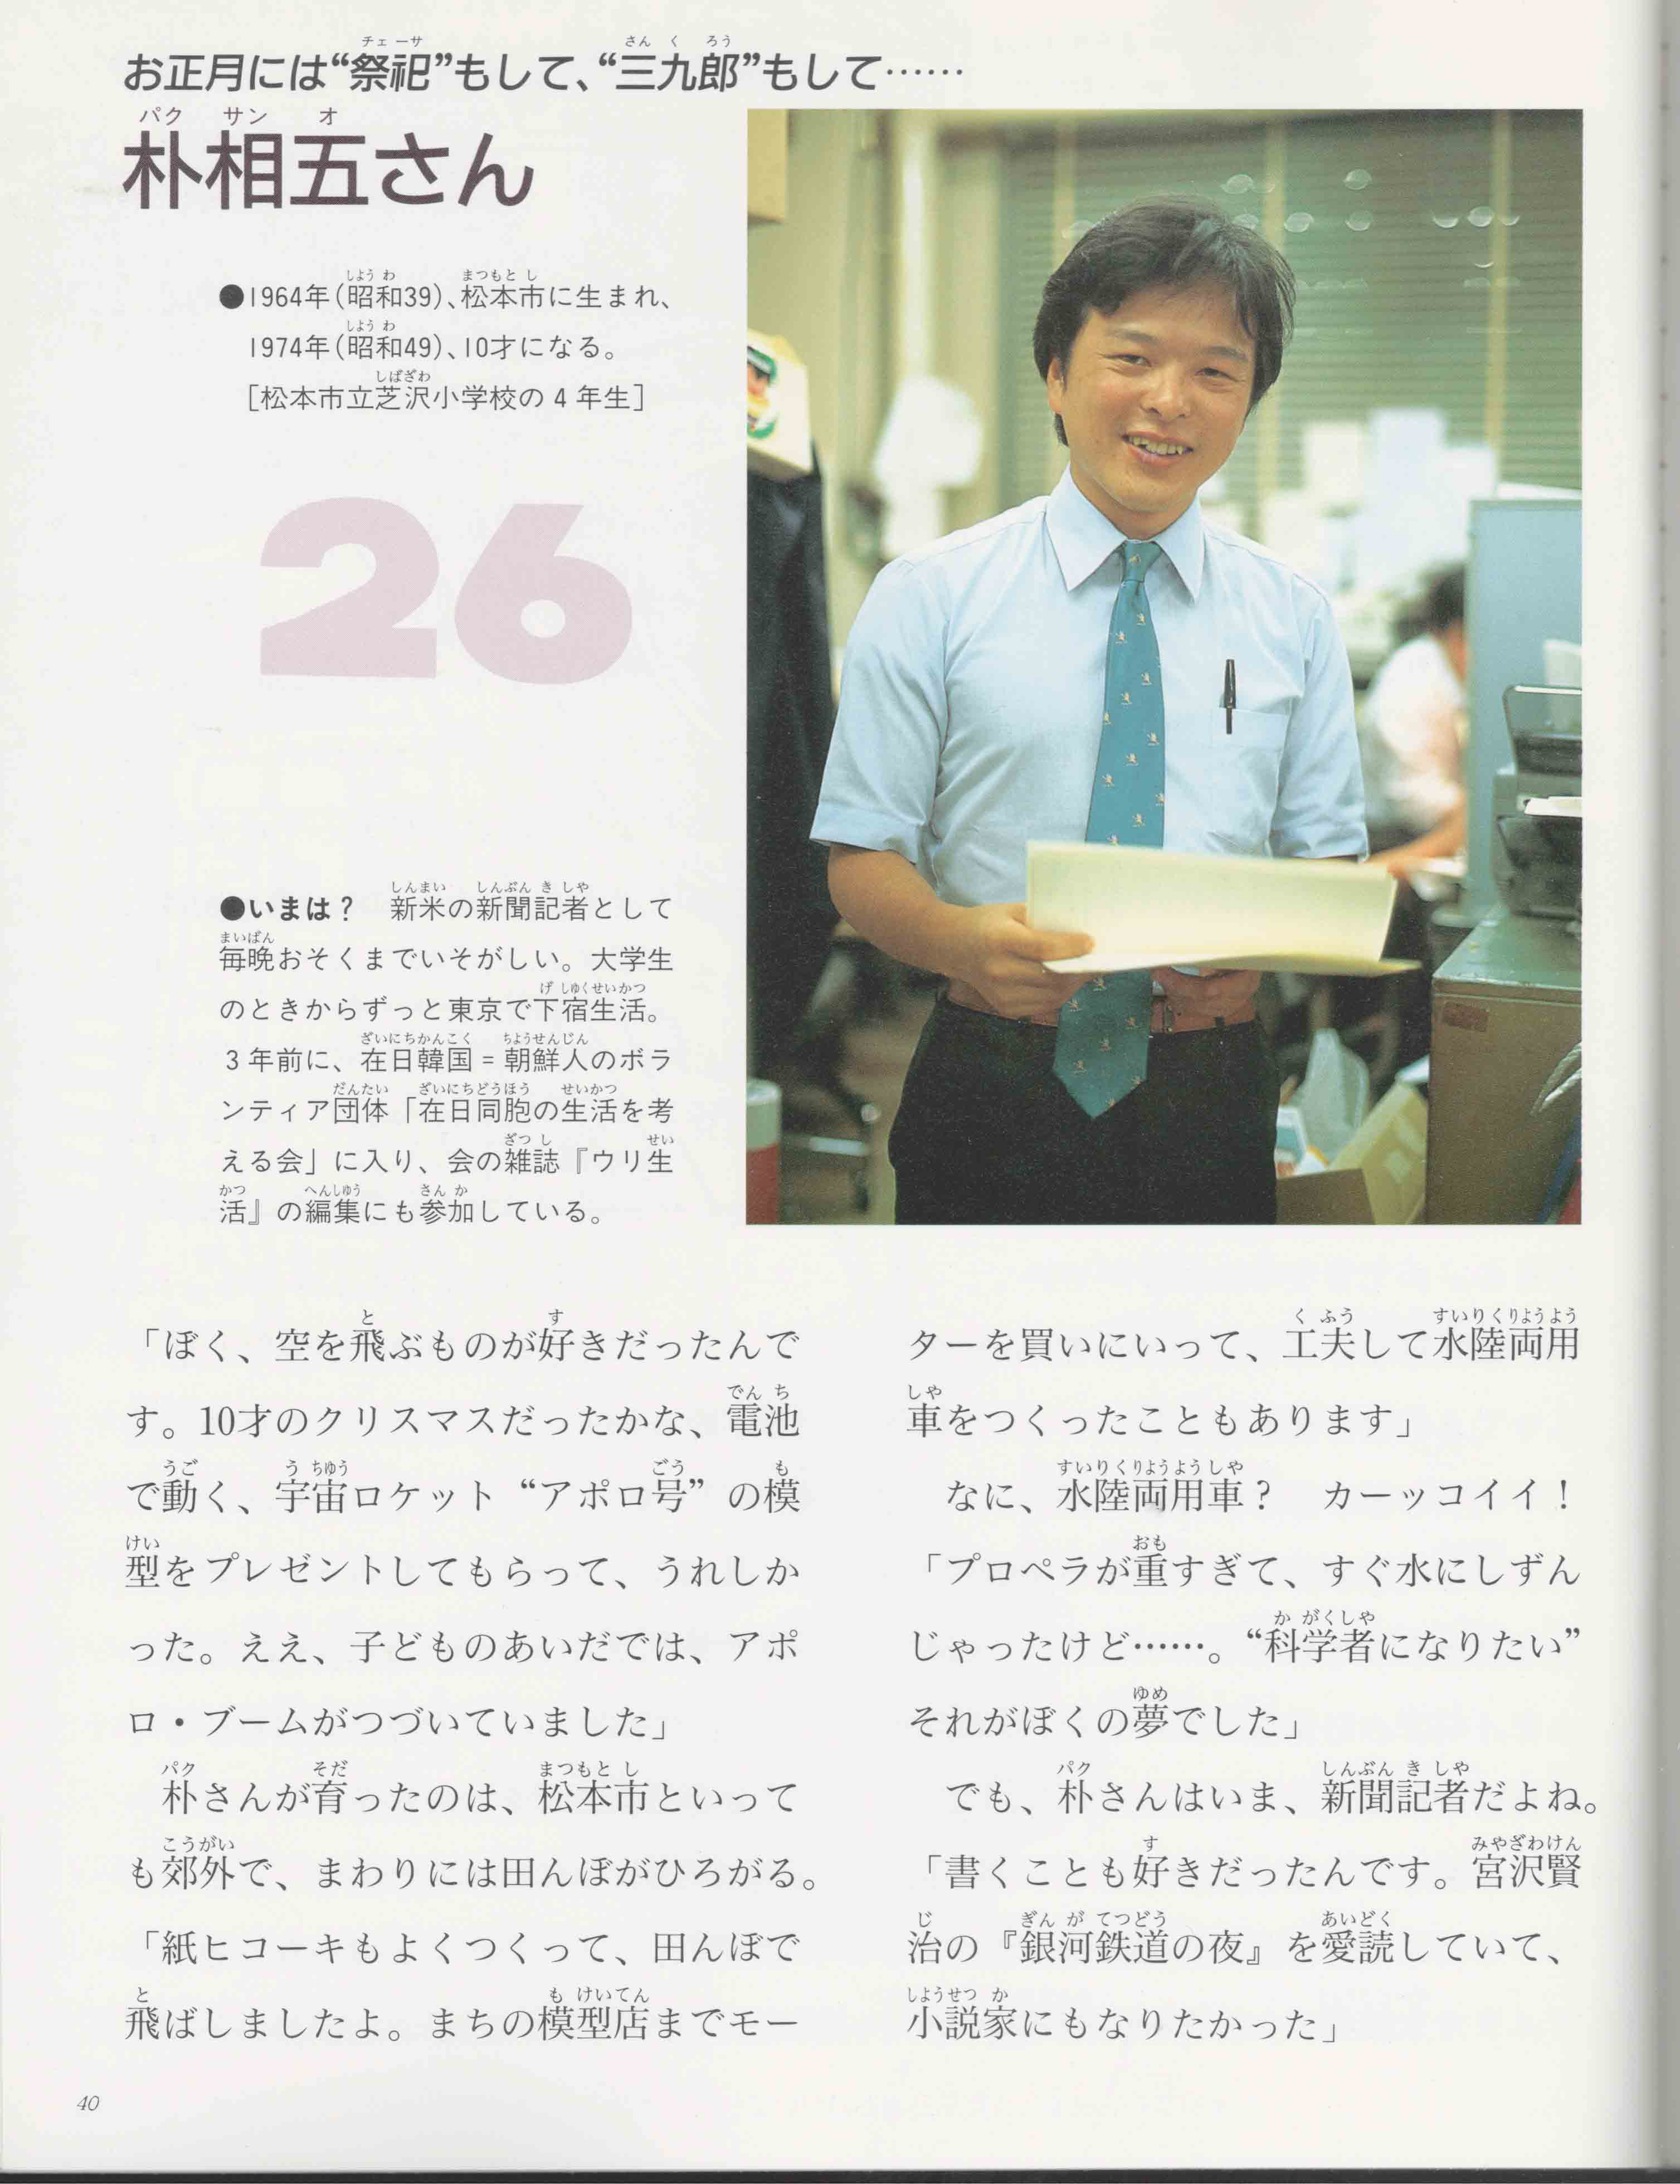 お正月には“祭祀”もして、“三九郎”もして……
朴相五さん
●1964年(昭和39)、松本市に生まれ、
1974年(昭和49)、10才になる。
[松本市立芝沢小学校の4年生]
26
●いまは？　新米の新聞記者として
毎晩おそくまでいそがしい。大学生
のときからずっと東京で下宿生活。
3年前に、在日韓国=朝鮮人のボラ
ンティア団体「在日同胞の生活を考
える会」に入り、会の雑誌『ウリ生
活』の編集にも参加している。
「ぼく、空を飛ぶものが好きだったんで
す。10才のクリスマスだったかな、電池
で動く、宇宙ロケット“アポロ号”の模
型をプレゼントしてもらって、うれしか
った。ええ、子どものあいだでは、アポ
ロ・ブームがつづいていました」
朴さんが育ったのは、松本市といって
も郊外で、まわりには田んぼがひろがる。
「紙ヒコーキもよくつくって、田んぼで
飛ばしましたよ。まちの模型店までモー
ターを買いにいって、工夫して水陸両用
車をつくったこともあります」
なに、水陸両用車？　カーッコイイ！
「プロペラが重すぎて、すぐ水にしずん
じゃったけど……。“科学者になりたい”
それがぼくの夢でした」
でも、朴さんはいま、新聞記者だよね。
「書くことも好きだったんです。宮沢賢
治の『銀河鉄道の夜』を愛読していて、
小説家にもなりたかった」
40